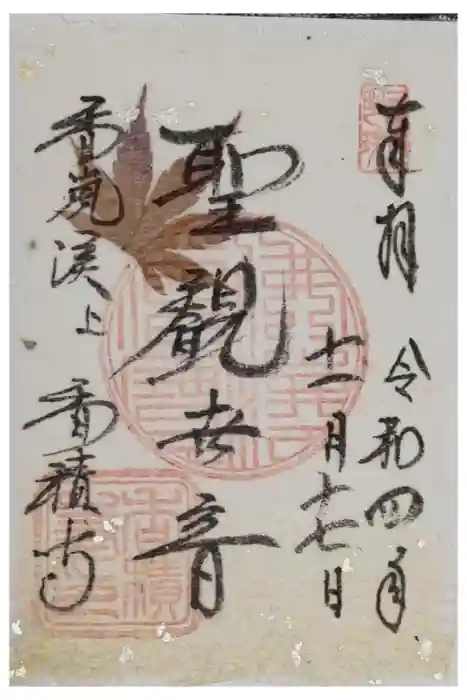 奉拝 令和四年
十一月十七日
聖觀世音
香嵐渓上 香積寺